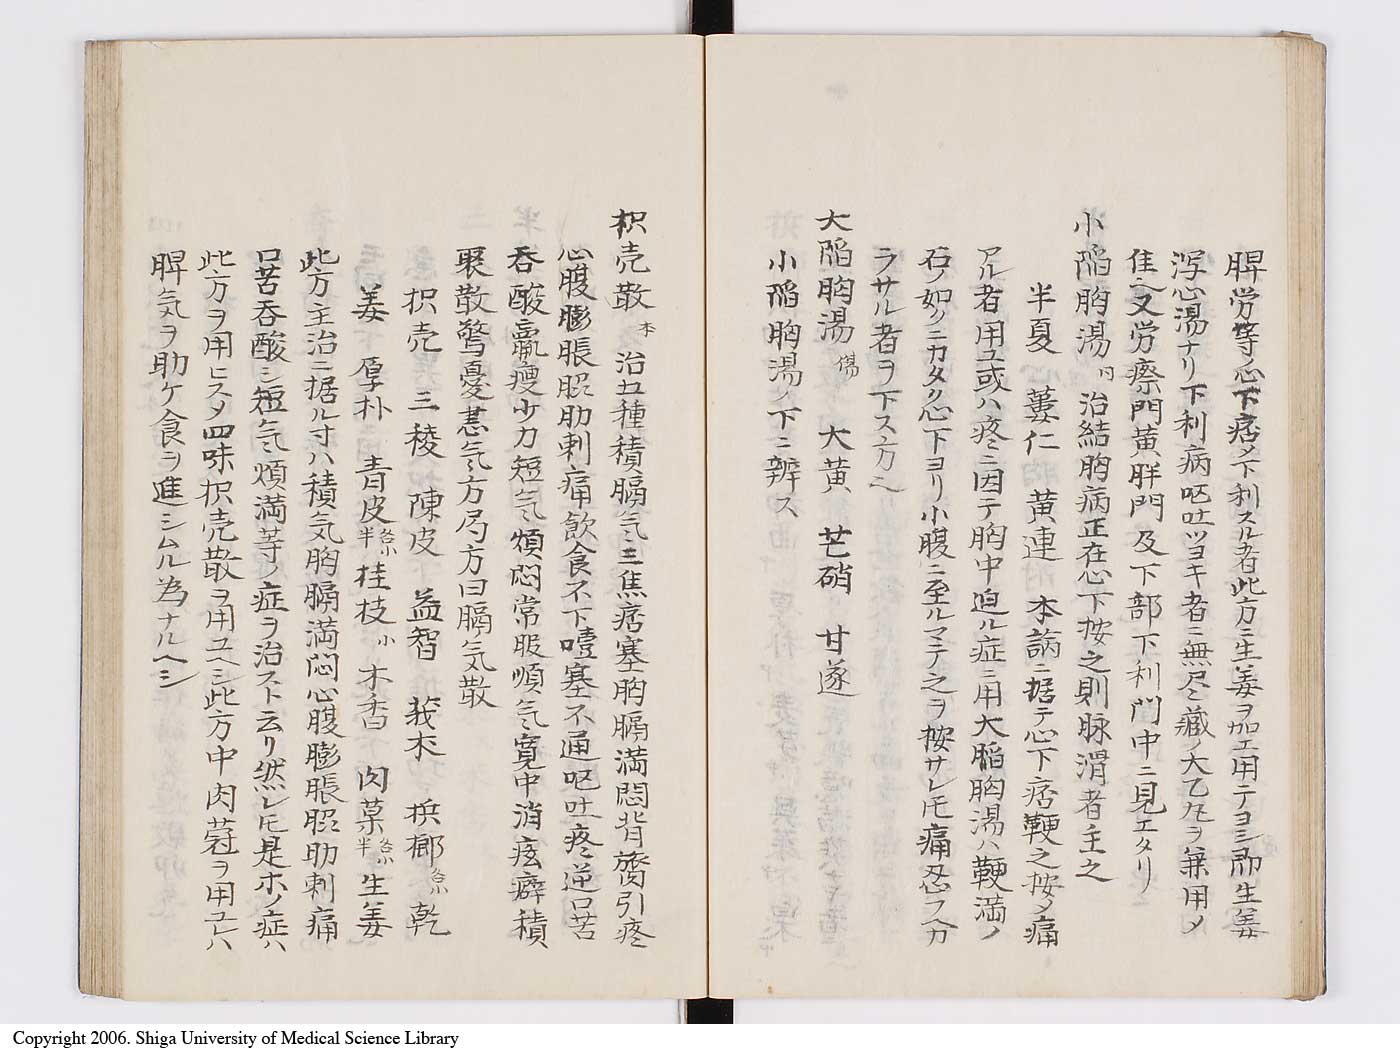 脾労等心下痞〆下利スル者此方ニ生姜ヲ加エ用テヨシ即生姜
瀉心湯ナリ下利病呕吐ツヨキ者ニ無尽蔵ノ大乙丸ヲ兼用〆
佳也又労瘵門黄胖門及下部下利門中ニ見エタリ
小陥胸湯 同 治結胸病正在心下按之則脉滑者主之
半夏 蔞仁 黄連 本論ニ据テ心下痞鞕之按ノ痛
アル者用ユ或ハ疼ニ因テ胸中迫ル症ニ用大陥胸湯ハ鞕満ノ
石ノ如クニカタク心下ヨリ小腹ニ至ルマテ之ヲ按サレ𪜈痛忍フ分
ラサル者ヲ下ス方也
大陥胸湯 傷 大黄 芒硝 甘遂
小陥胸湯ノ下ニ辨ス
枳壳散 本 治五種積膈气三焦痞塞胸膈満悶背膂引疼
心腹膨脹脇肋刺痛飲食不下噎塞不通呕吐疼逆口苦
呑酸羸痩少力短气煩悶常服順气寛中消痃癖積
聚散驚憂恚气方局方曰膈気散
枳壳 三稜 陳皮 益智 莪朮 梹榔各小 乾
姜 厚朴 青皮各小半 桂枝小 木香 肉菓各小半 生姜
此方主治ニ据ル寸ハ積気胸膈満悶心腹膨脹脇肋刺痛
口苦呑酸シ短气煩満等ノ症ヲ治スト云リ然レ𪜈是ホノ症ハ
此方ヲ用ヒス〆四味枳壳散ヲ用ユヘシ此方中肉蔲ヲ用ユレハ
脾気ヲ助ケ食ヲ進シムル為ナルヘシ
Copyright 2006. Shiga University of Medical Science Library